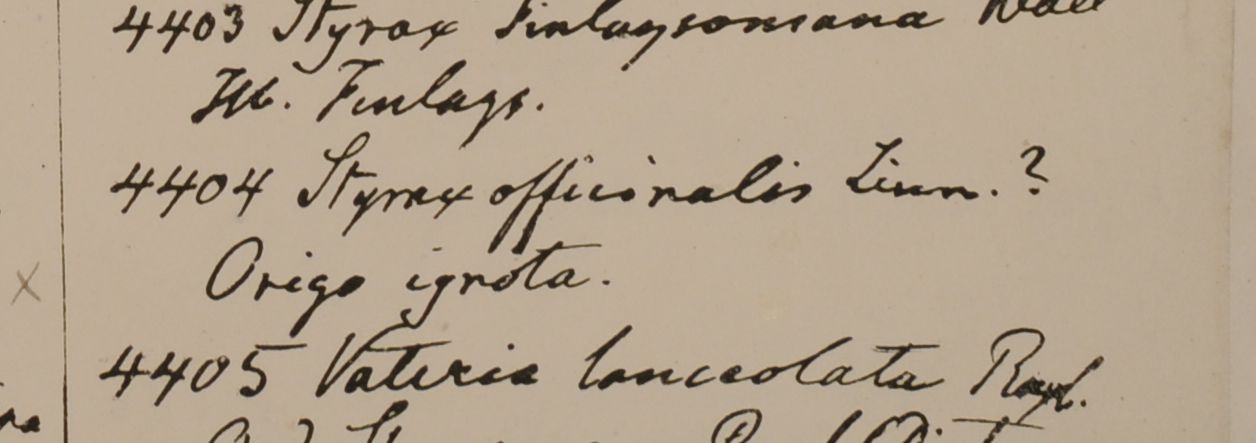 4403 Styrax Finlaysoniana Wall
Hb. Finlays.
4404 Styrax officinalis Linn.?
Origo ignota.
4405 Vateria lanceolata Roxb.